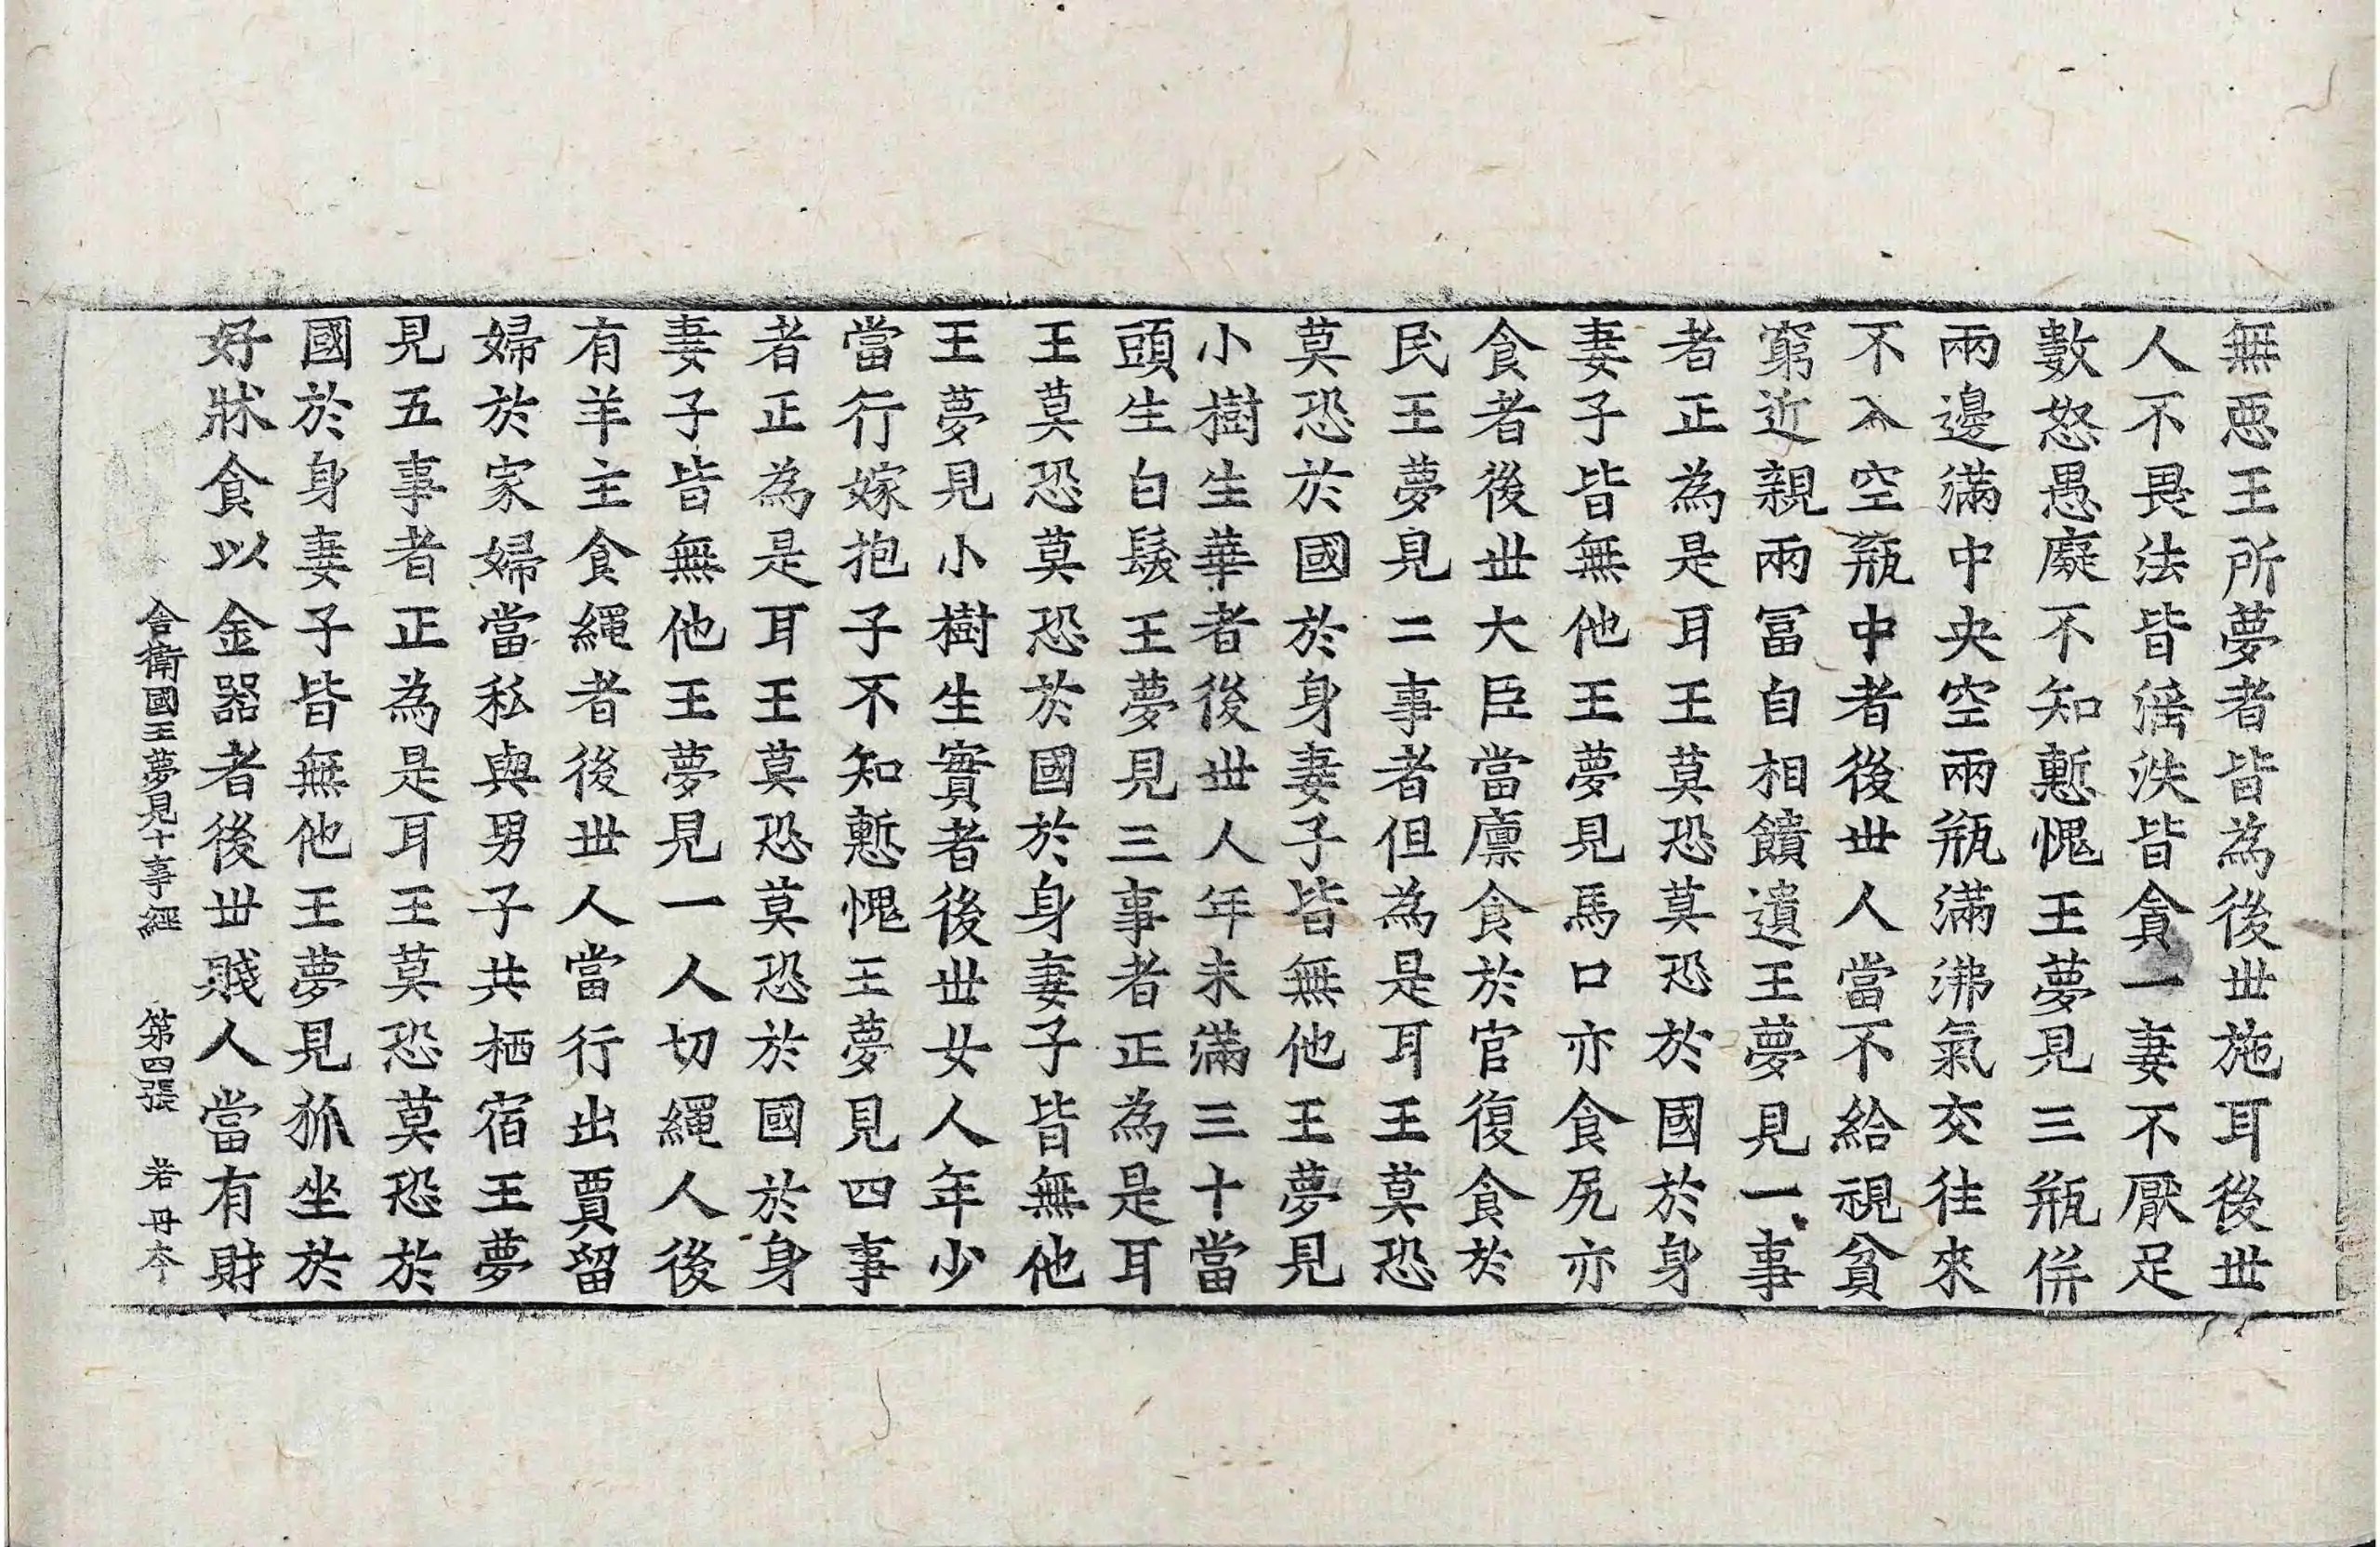 無惡王所夢者皆為後世施耳後世
人不畏法皆婬泆皆貪一妻不厭足
數怒愚癡不知慙愧王夢見三瓶併
兩邊滿中央空兩瓶滿沸氣交往來
不入空瓶中者後世人當不給視貧
窮近親兩冨自相饋遺王夢見一事
者正為是耳王莫恐莫恐於國於身
妻子皆無他王夢見馬口亦食尻亦
食者後世大臣當廪食於官復食於
民王夢見二事者但為是耳王莫恐
莫恐於國於身妻子皆無他王夢見
小樹生華者後世人年未滿三十當
頭生白髮王夢見三事者正為是耳
王莫恐莫恐於國於身妻子皆無他
王夢見小樹生實者後世女人年少
當行嫁抱子不知慙愧王夢見四事
者正為是耳王莫恐莫恐於國於身
妻子皆無他王夢見一人切繩人後
有羊主食繩者後世人當行出賈留
婦於家婦當私與男子共栖宿王夢
見五事者正為是耳王莫恐莫恐於
國於身妻子皆無他王夢見狐坐於
好牀食以金器者後世賤人當有財
舍衛國王夢見十事經 第四張 若 毋夲